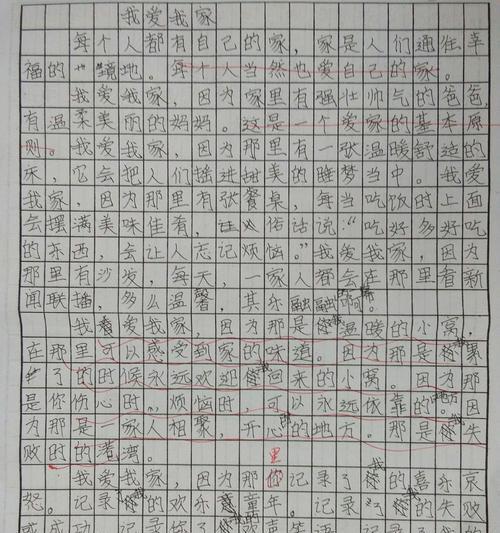 我爱我家
每个人都有自己的家，家是人们通往幸
福的一境地。每个人当然也爱自己的家。
我爱我家，因为家里有强壮帅气的爸爸，
有温柔美丽的妈妈。这是一个爱家的基本原
则。我爱我家，因为那里有一张温暖舒适的
床，它会把人们摇进甜美的睡梦当中。我爱
我家，因为那里有张餐桌，每当吃饭时上面
会摆满美味佳肴，俗话说：“吃好多好吃
的东西，会让人忘记烦恼。”我爱我家，因为
那里有沙发，每天，一家人都会在那里看新
闻联播，多么温馨，其乐融融啊。
我爱我家，因为那是我温暖的小窝，
在那里可以感受到家的味道。因为那是我累
了的时候永远欢迎我回来的小窝。因为那
是你伤心时，烦恼时，可以永远依靠的。因
为那是一家人相聚，开心的地方。那是我失
败时的港湾。
我爱我家，因为那里记录了我的喜乐哀
怒。记录了我的欢乐童年。记录了我的失败
或成功，记录你了的欢声笑语